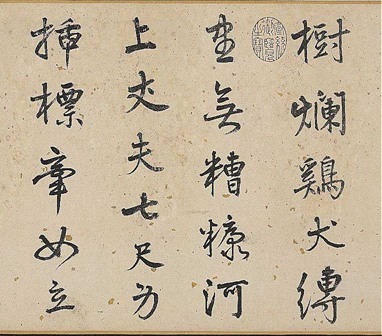 樹爛鷄犬縛
無糟糠河
上丈夫七尺身
插標如立